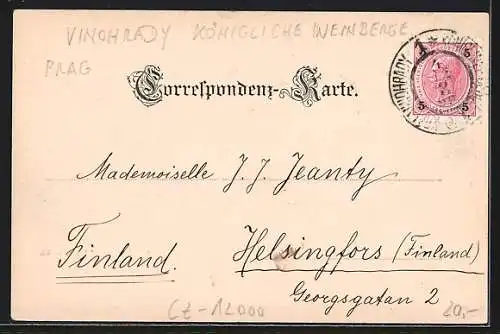 VINOHRADY KÖNIGLICHE WEINBERGE
PRAG
Correspondenz-Karte.
1
5 5
VINOHRADY
Mademoiselle J. J. Jeanty
Finland.
Helsingfors (Finland)
Georgsgatan 2
CZ-12000
20,-